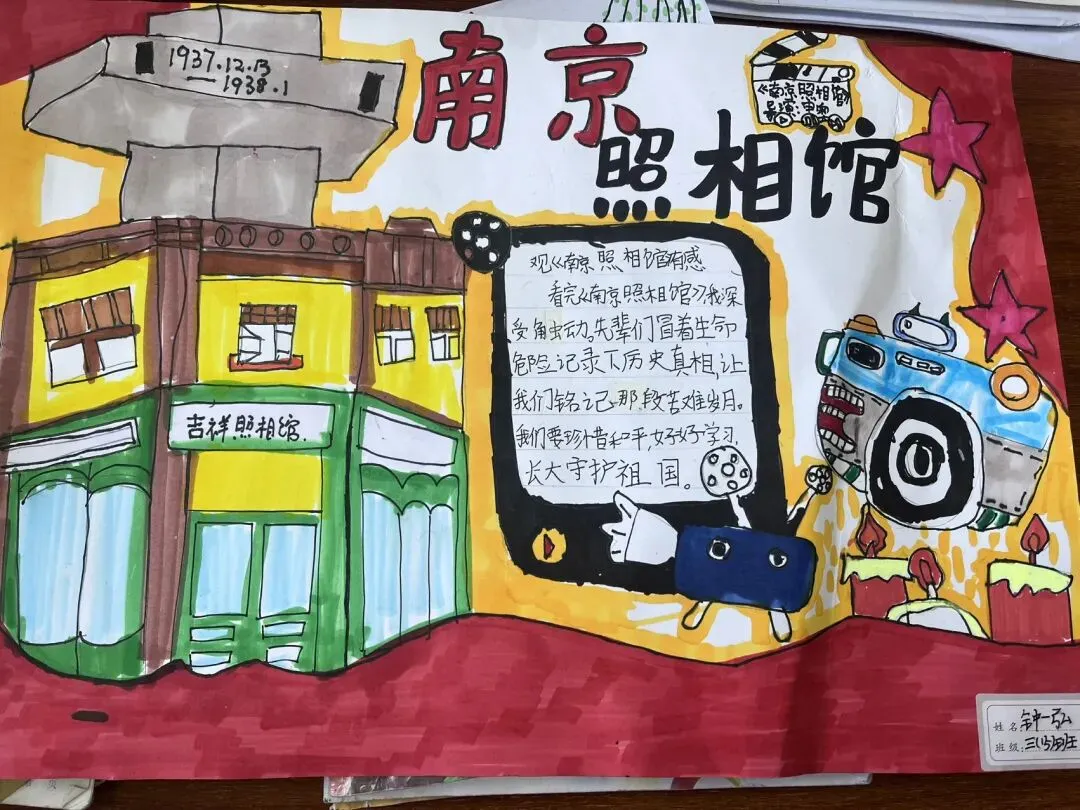 1937.12.13
—1938.1
南京
照相馆
《南京照相馆》
导演:申奥
吉祥照相馆
观《南京照相馆》有感
看完《南京照相馆》我深
受触动。先辈们冒着生命
危险记录下历史真相,让
我们铭记那段苦难岁月。
我们要珍惜和平,好好学习,
长大守护祖国。
姓名:钟一弘
班级:三(5)班